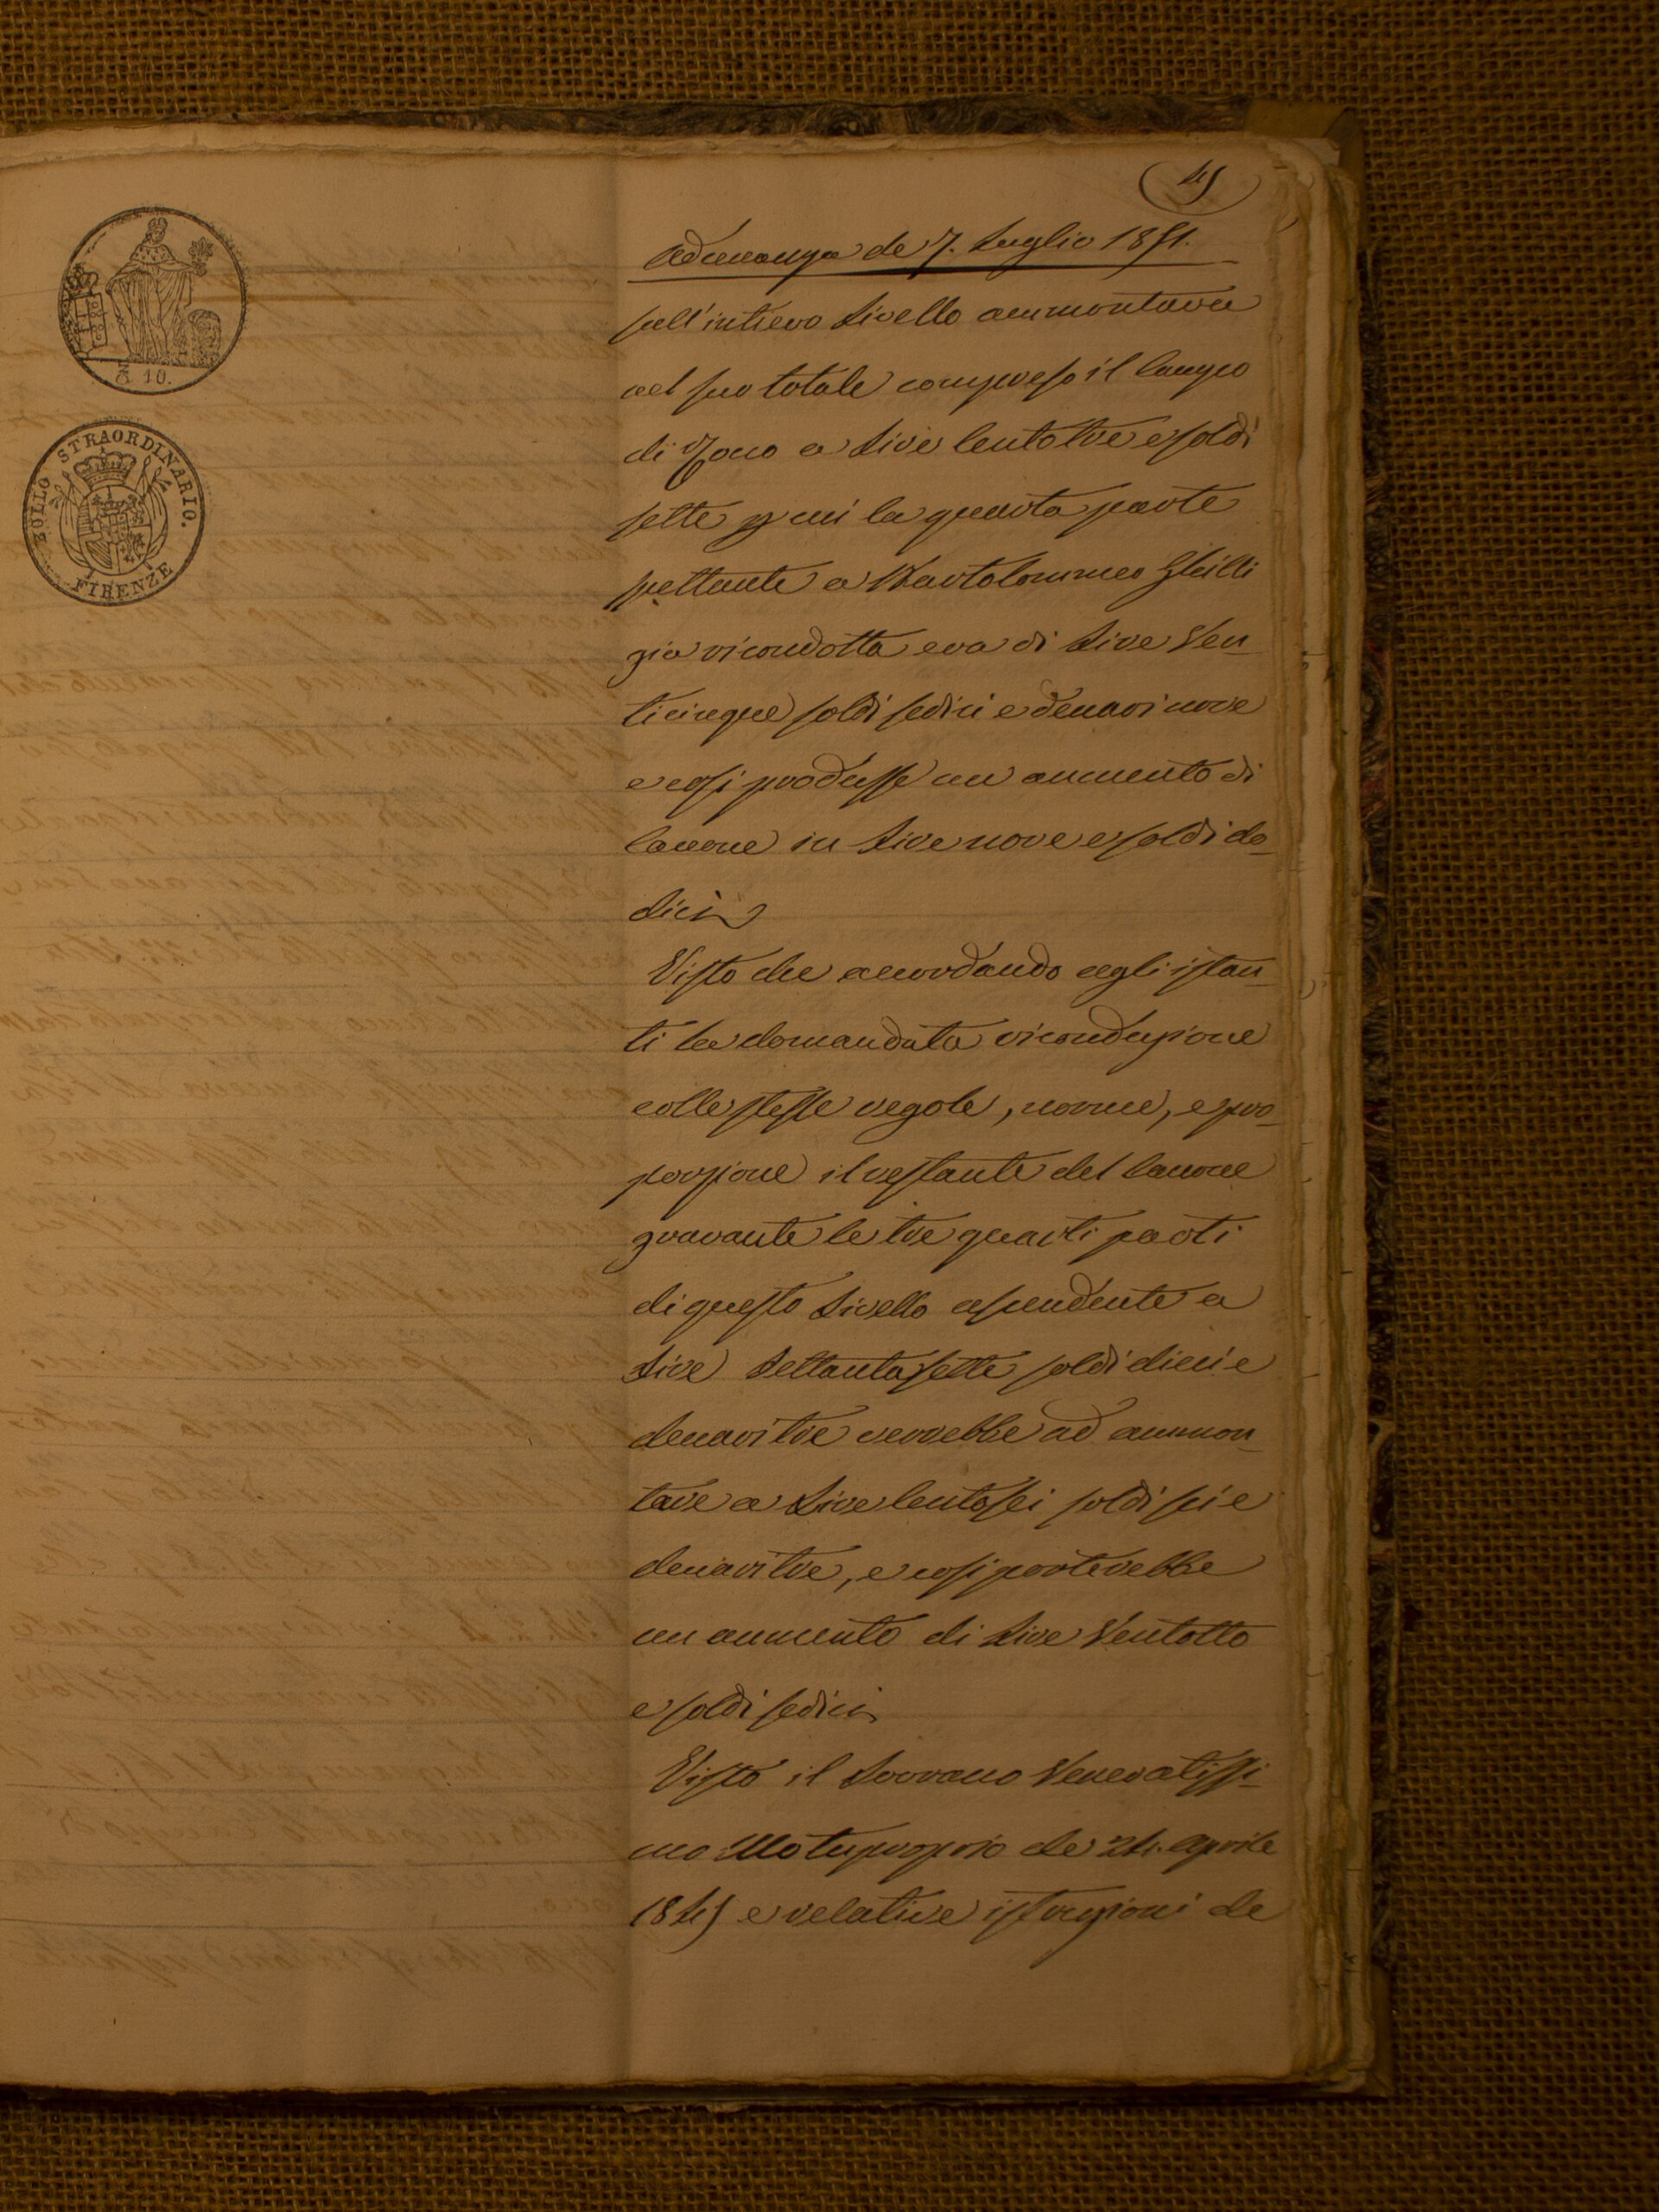 45
Adunanza de 7. Luglio 1851.
sull'intiero Livello ammontava
nel suo totale compreso il Campo
di Zono a Lire Centotre e soldi
sette p cui la quarta parte
spettante a Bartolommeo Ghilli
già ricondotta era di Lire Ven_
ticinque soldi sedici e denari nove
e così produsse un aumento di
Canone in Lire nove e soldi do_
dici
Visto che accordando agli istan_
ti la domandata riconduzione
colle stesse regole, norme, e pro_
porzione il restante del Canone
gravante le tre quarti parti
di questo Livello ascendente a
Lire Settantasette soldi dieci e
denari tre verrebbe ad ammon_
tare a Lire Centosei soldi sei e
denari tre, e così porterebbe
un aumento di Lire Ventotto
e soldi sedici
Visto il Sovrano Veneratissi_
mo Motuproprio de 24. Aprile
1845 e relative istruzioni de
10.
BOLLO STRAORDINARIO.
FIRENZE